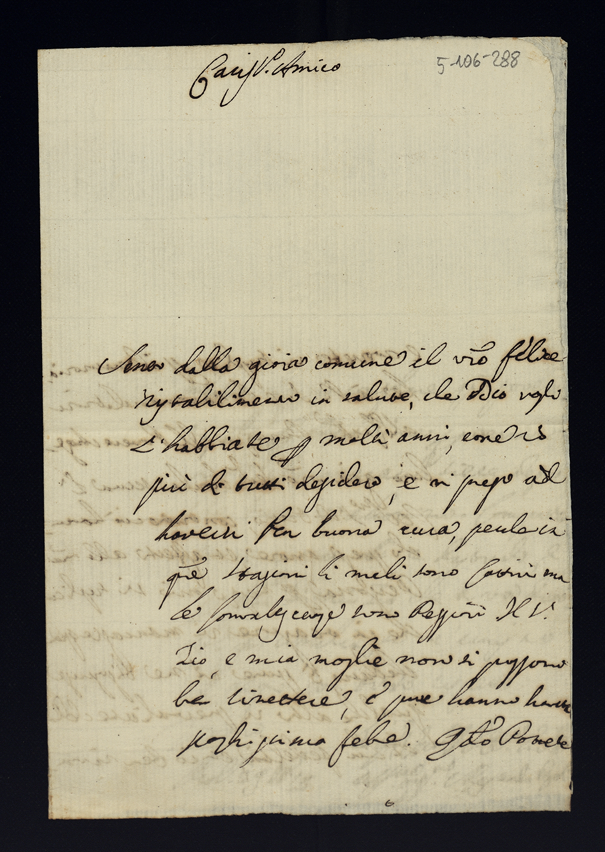 Cariss.º Amico
5-106-288
Sento dalla gioia comune il vrô felice
ristabilimento in salute, che Dio vogli
l'habbiate p molti anni, come io
più di tutti desidero, e vi prego ad
havervi ben buona cura, perche in
qte stagioni li mali sono cattivi ma
le convalescenze sono peggiori. Il S.r
Zio, e mia moglie non si possono
ben rimettere, e pure hanno havuto
pochissima febe.